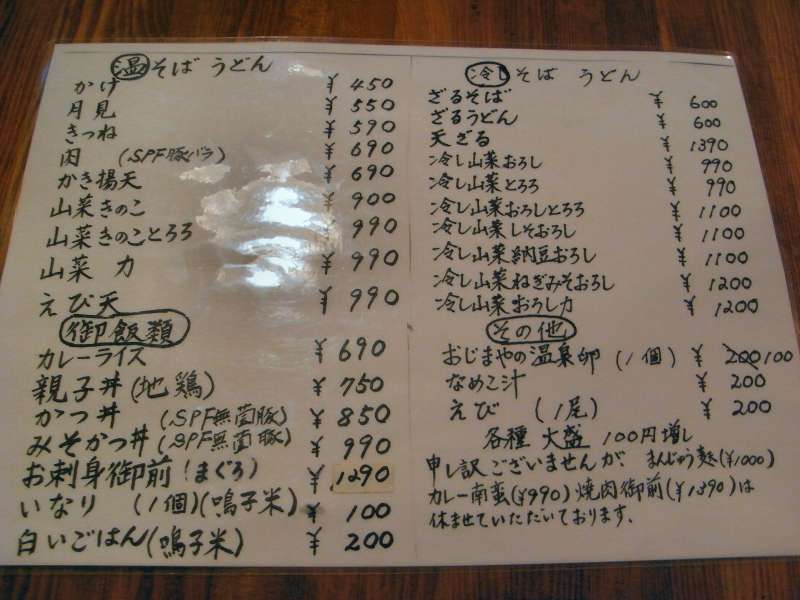 温 そば うどん
かけ ¥450
月見 ¥550
きつね ¥590
肉 (SPF豚バラ) ¥690
かき揚天 ¥690
山菜きのこ ¥900
山菜きのことろろ ¥990
山菜 力 ¥990
えび天 ¥990
御飯類
カレーライス ¥690
親子丼(地鶏) ¥750
かつ丼 (SPF無菌豚) ¥850
みそかつ丼(SPF無菌豚) ¥990
お刺身御前(まぐろ) ¥1290
いなり (1個)(鳴子米) ¥100
白いごはん(鳴子米) ¥200
冷し そば うどん
ざるそば ¥600
ざるうどん ¥600
天ざる ¥1390
冷し山菜おろし ¥990
冷し山菜とろろ ¥990
冷し山菜おろしとろろ ¥1100
冷し山菜しそおろし ¥1100
冷し山菜納豆おろし ¥1100
冷し山菜ねぎみそおろし ¥1200
冷し山菜おろし力 ¥1200
その他
おじまやの温泉卵 (1個) ¥200 100
なめこ汁 ¥200
えび (1尾) ¥200
各種 大盛 100円増し
申し訳ございませんが、まんじゅう麩(¥1000)
カレー南蛮(¥990)焼肉御前(¥1390)は
休ませていただいております。